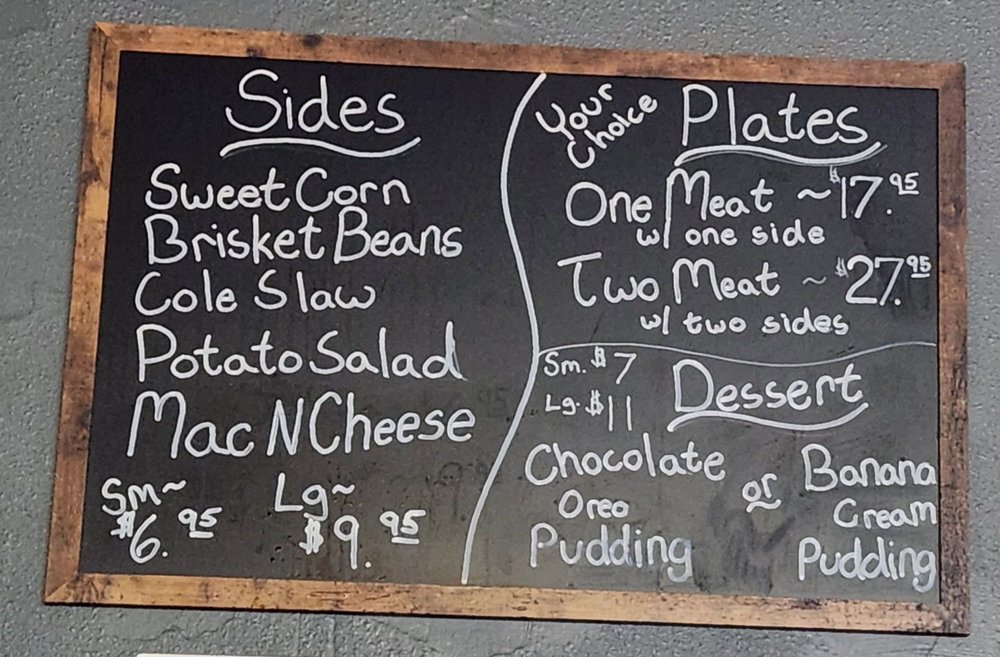 Sides
Sweet Corn
Brisket Beans
Cole Slaw
Potato Salad
Mac N Cheese
Sm~ Lg~
$6.95 $9.95
Your Choice Plates
One Meat ~ $17.95
w/ one side
Two Meat ~ $27.95
w/ two sides
Sm. $7
Lg. $11
Dessert
Chocolate
Oreo
Pudding
or
Banana
Cream
Pudding